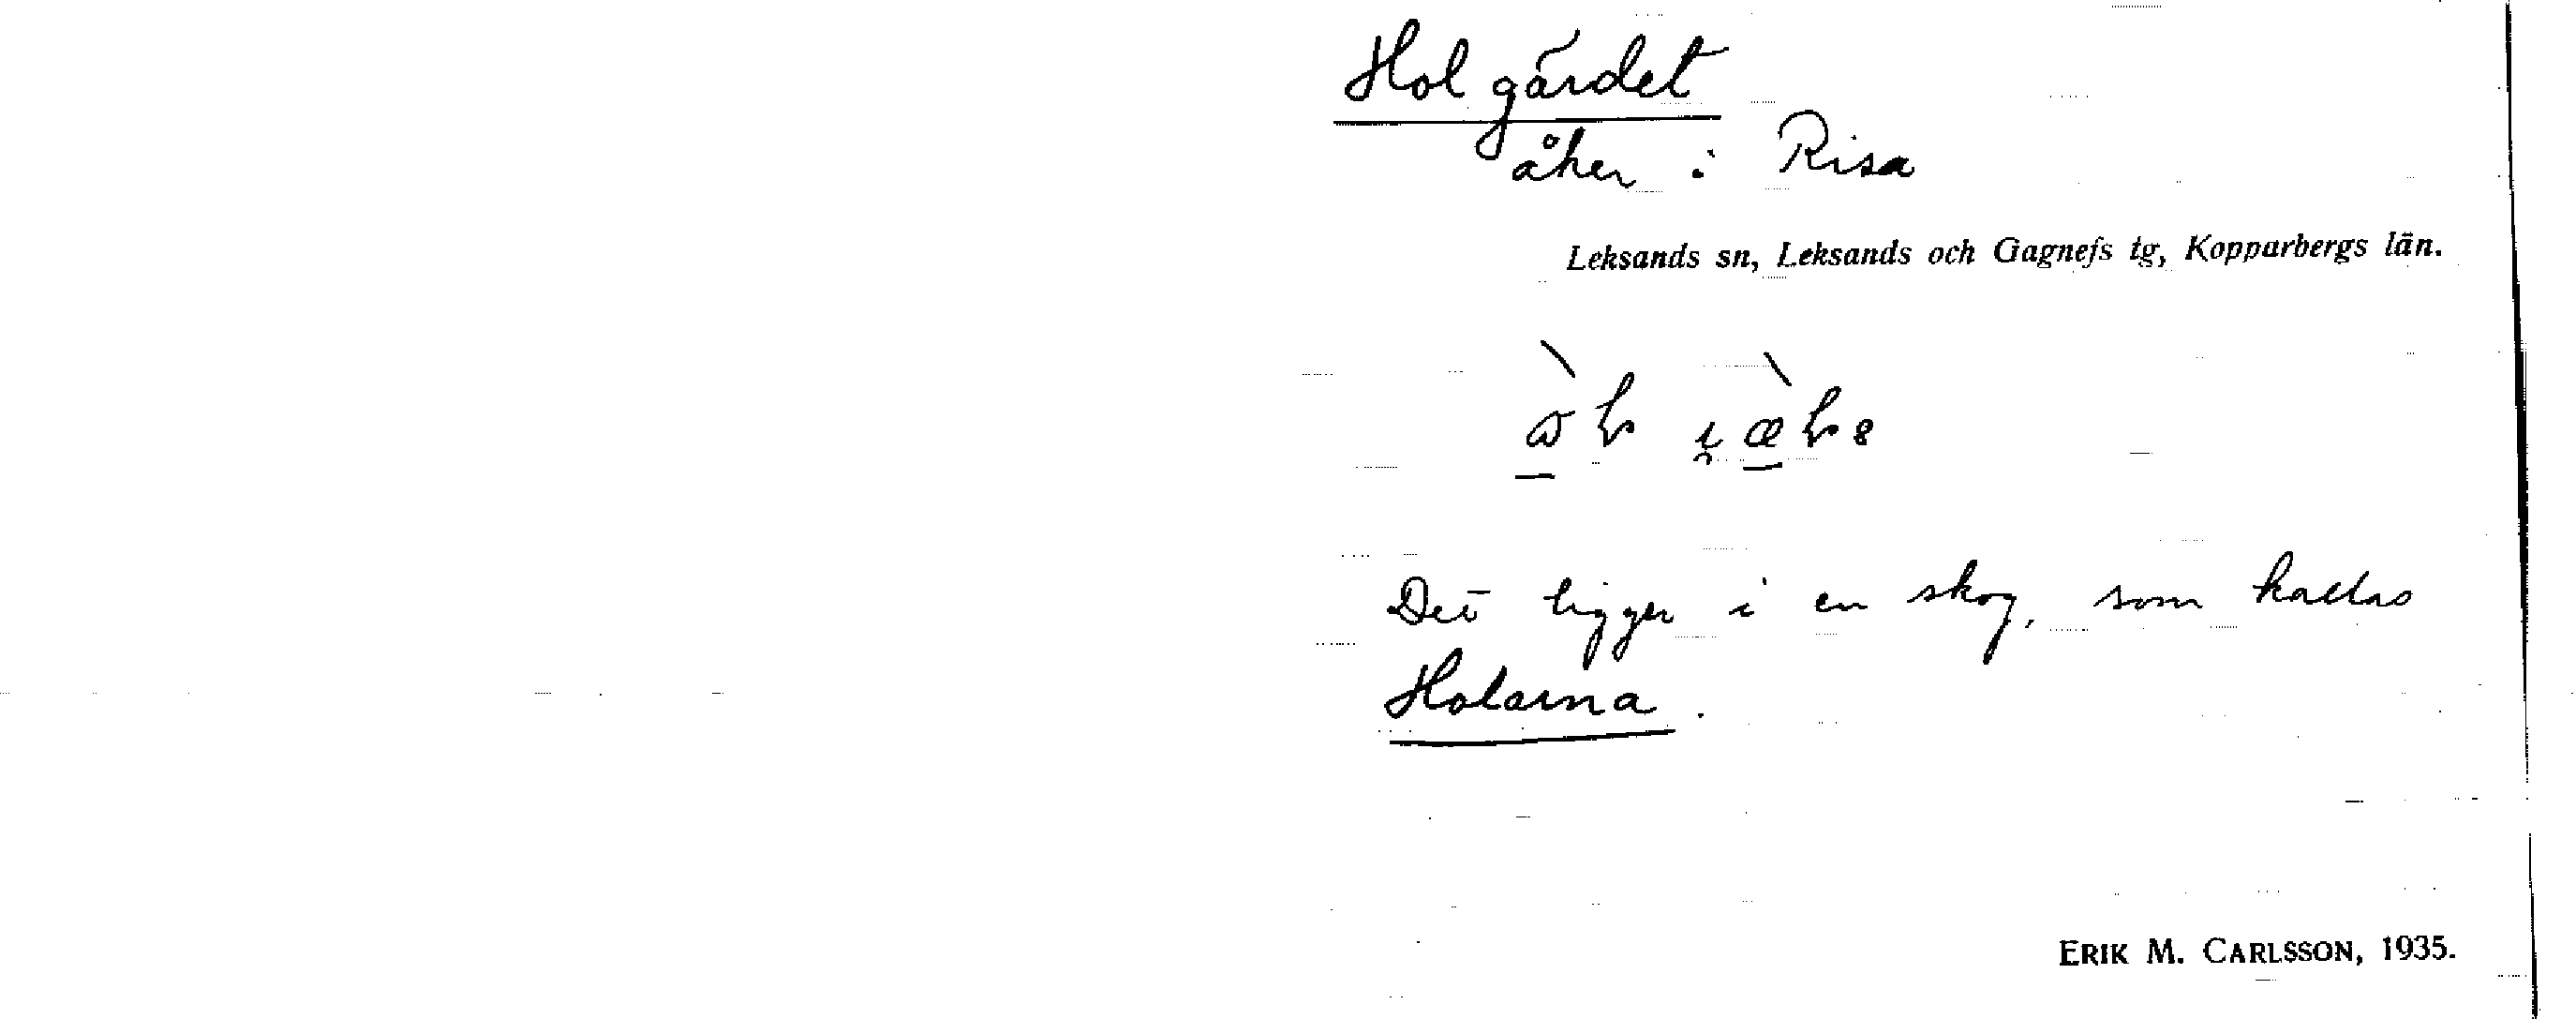 Holgärdet
åker i Risa
Leksands sn, Leksands och Gagnefs tg, Kopparbergs län.
Det ligger i en skog, som kallas
Holarna.
ERIK M. CARLSSON, 1935.